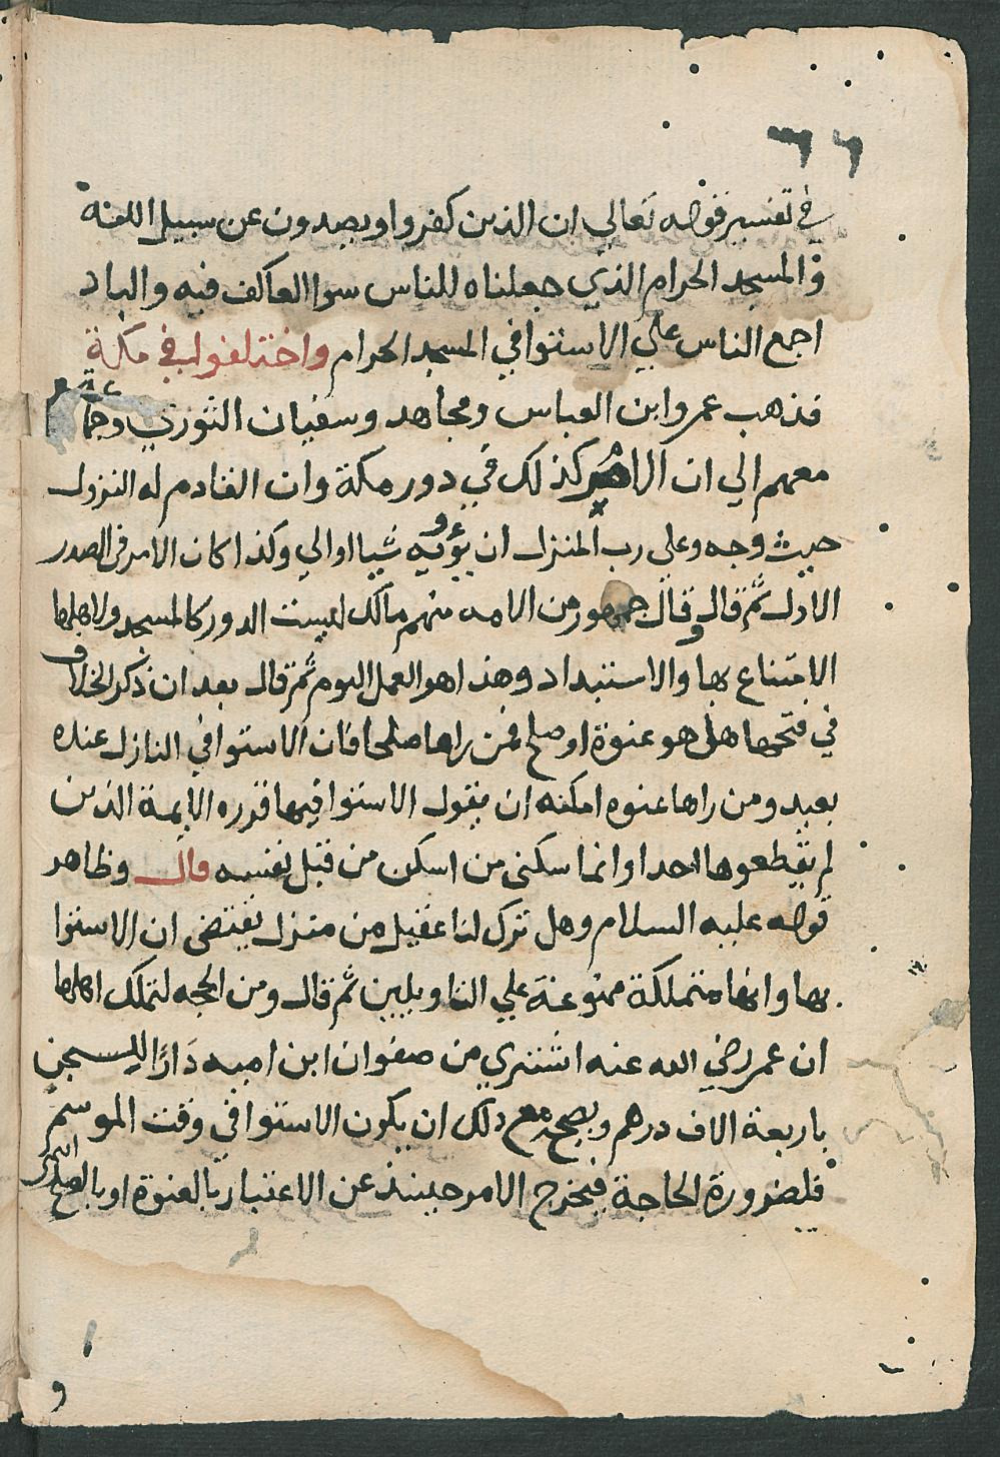 ٦٦
في تفسير قوله تعالي ان الذين كفروا ويصدون عن سبيل الله
والمسجد الحرام الذي جعلناه للناس سوا العاكف فيه والباد
اجمع الناس علي الاستوا في المسجد الحرام واختلفوا في مكة
فذهب عمر وابن العباس ومجاهد وسفيان الثوري وجماعة
معهم الي ان الامر كذلك في دور مكة وان القادم له النزول
حيث وجد وعلى رب المنزل ان يؤويه شيا او الي وكذا كان الامر في الصدر
الاول ثم قال وقال جمهور من الامه منهم مالك ليست الدور كالمسجد ولاهلها
الامتناع بها والاستبداد وهذا هو العمل اليوم ثم قال بعد ان ذكر الخلاف
في فتحها هل هو عنوة او صلح فمن راها صلحا فان الاستوا في النازل عنده
بعيد ومن راها عنوه امكنه ان يقول الاستوا فيها قرره الايمة الذين
لم يقطعوها احدا وانما سكنى من اسكن من قبل نفسه قال وظاهر
قوله عليه السلام وهل ترك لنا عقيل من منزل يقتضى ان الاستوا
بها وانها متملكة ممنوعة علي التاويلين ثم قال ومن الحجه لتملك اهلها
ان عمر رضي الله عنه اشتري من صفوان ابن اميه دارا للسجن
باربعة الاف درهم ويصح مع ذلك ان يكون الاستوا في وقت الموسم
فلضرورة الحاجة فيخرج الامر حينئذ عن الاعتبار بالعنوة او بالصلح
و